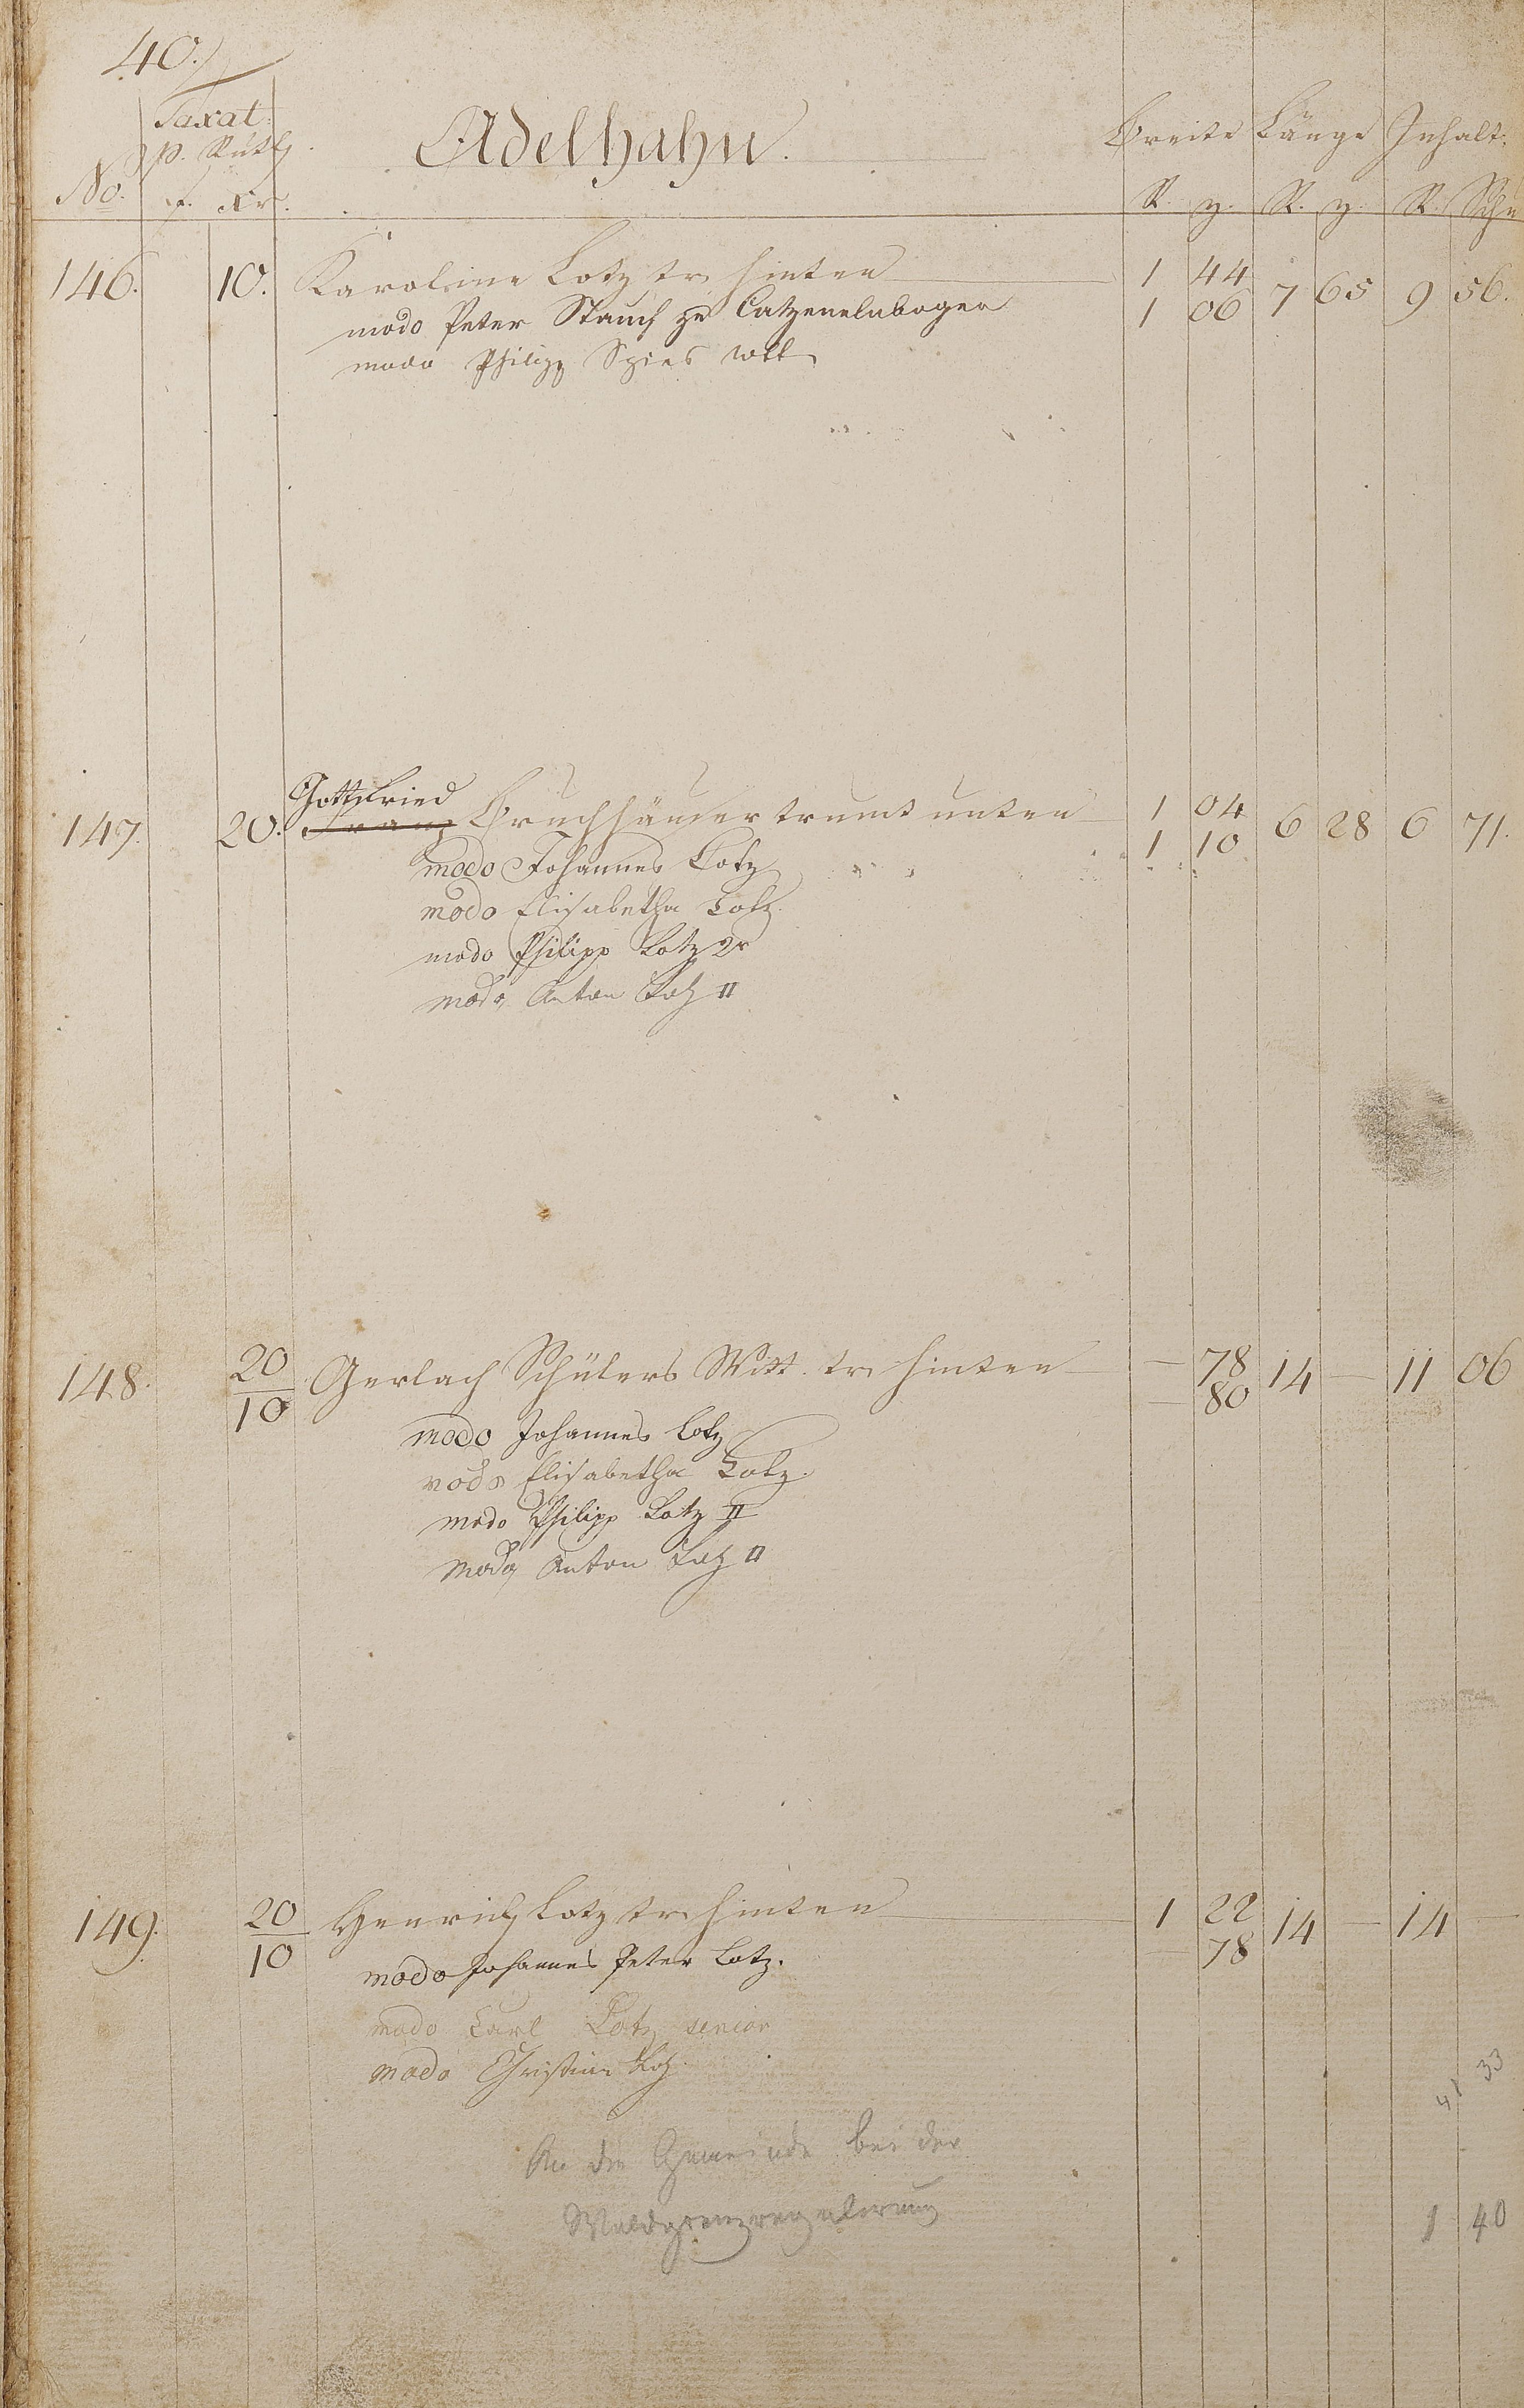 40.
Taxat.
p. Ruth.
No. f. xr.
Adelhahn.
Breite Länge Inhalt.
R. z. R. z. R. Schu
146. 10. Karoline Lotz tr. hinten 1 44 7 65 9 56.
1 06
modo Peter Stauch zu Catzenelnbogen
modo Philipp Spies
Gottfried
147. 20. Franz Bruchhäuser trumt unten 1 04 6 28 6 71.
1 10
modo Johannes Lotz
modo Elisabetha Lotz.
modo Philipp Lotz 2r
modo Anton Lotz II
148. 20 Gerlach Schülers Witt. tr. hinten — 78 14 — 11 06
10 — 80
modo Johannes Lotz
modo Elisabetha Lotz.
modo Philipp Lotz II
modo Anton Lotz II
149. 20 Henrich Lotz tr. hinten 1 22 14 — 14 —
10 — 78
modo Johannes Peter Lotz.
modo Carl Lotz senior
modo Christian Lotz
41 33
An die Gemeinde bei der
Waldgrenzregulierung 1 40